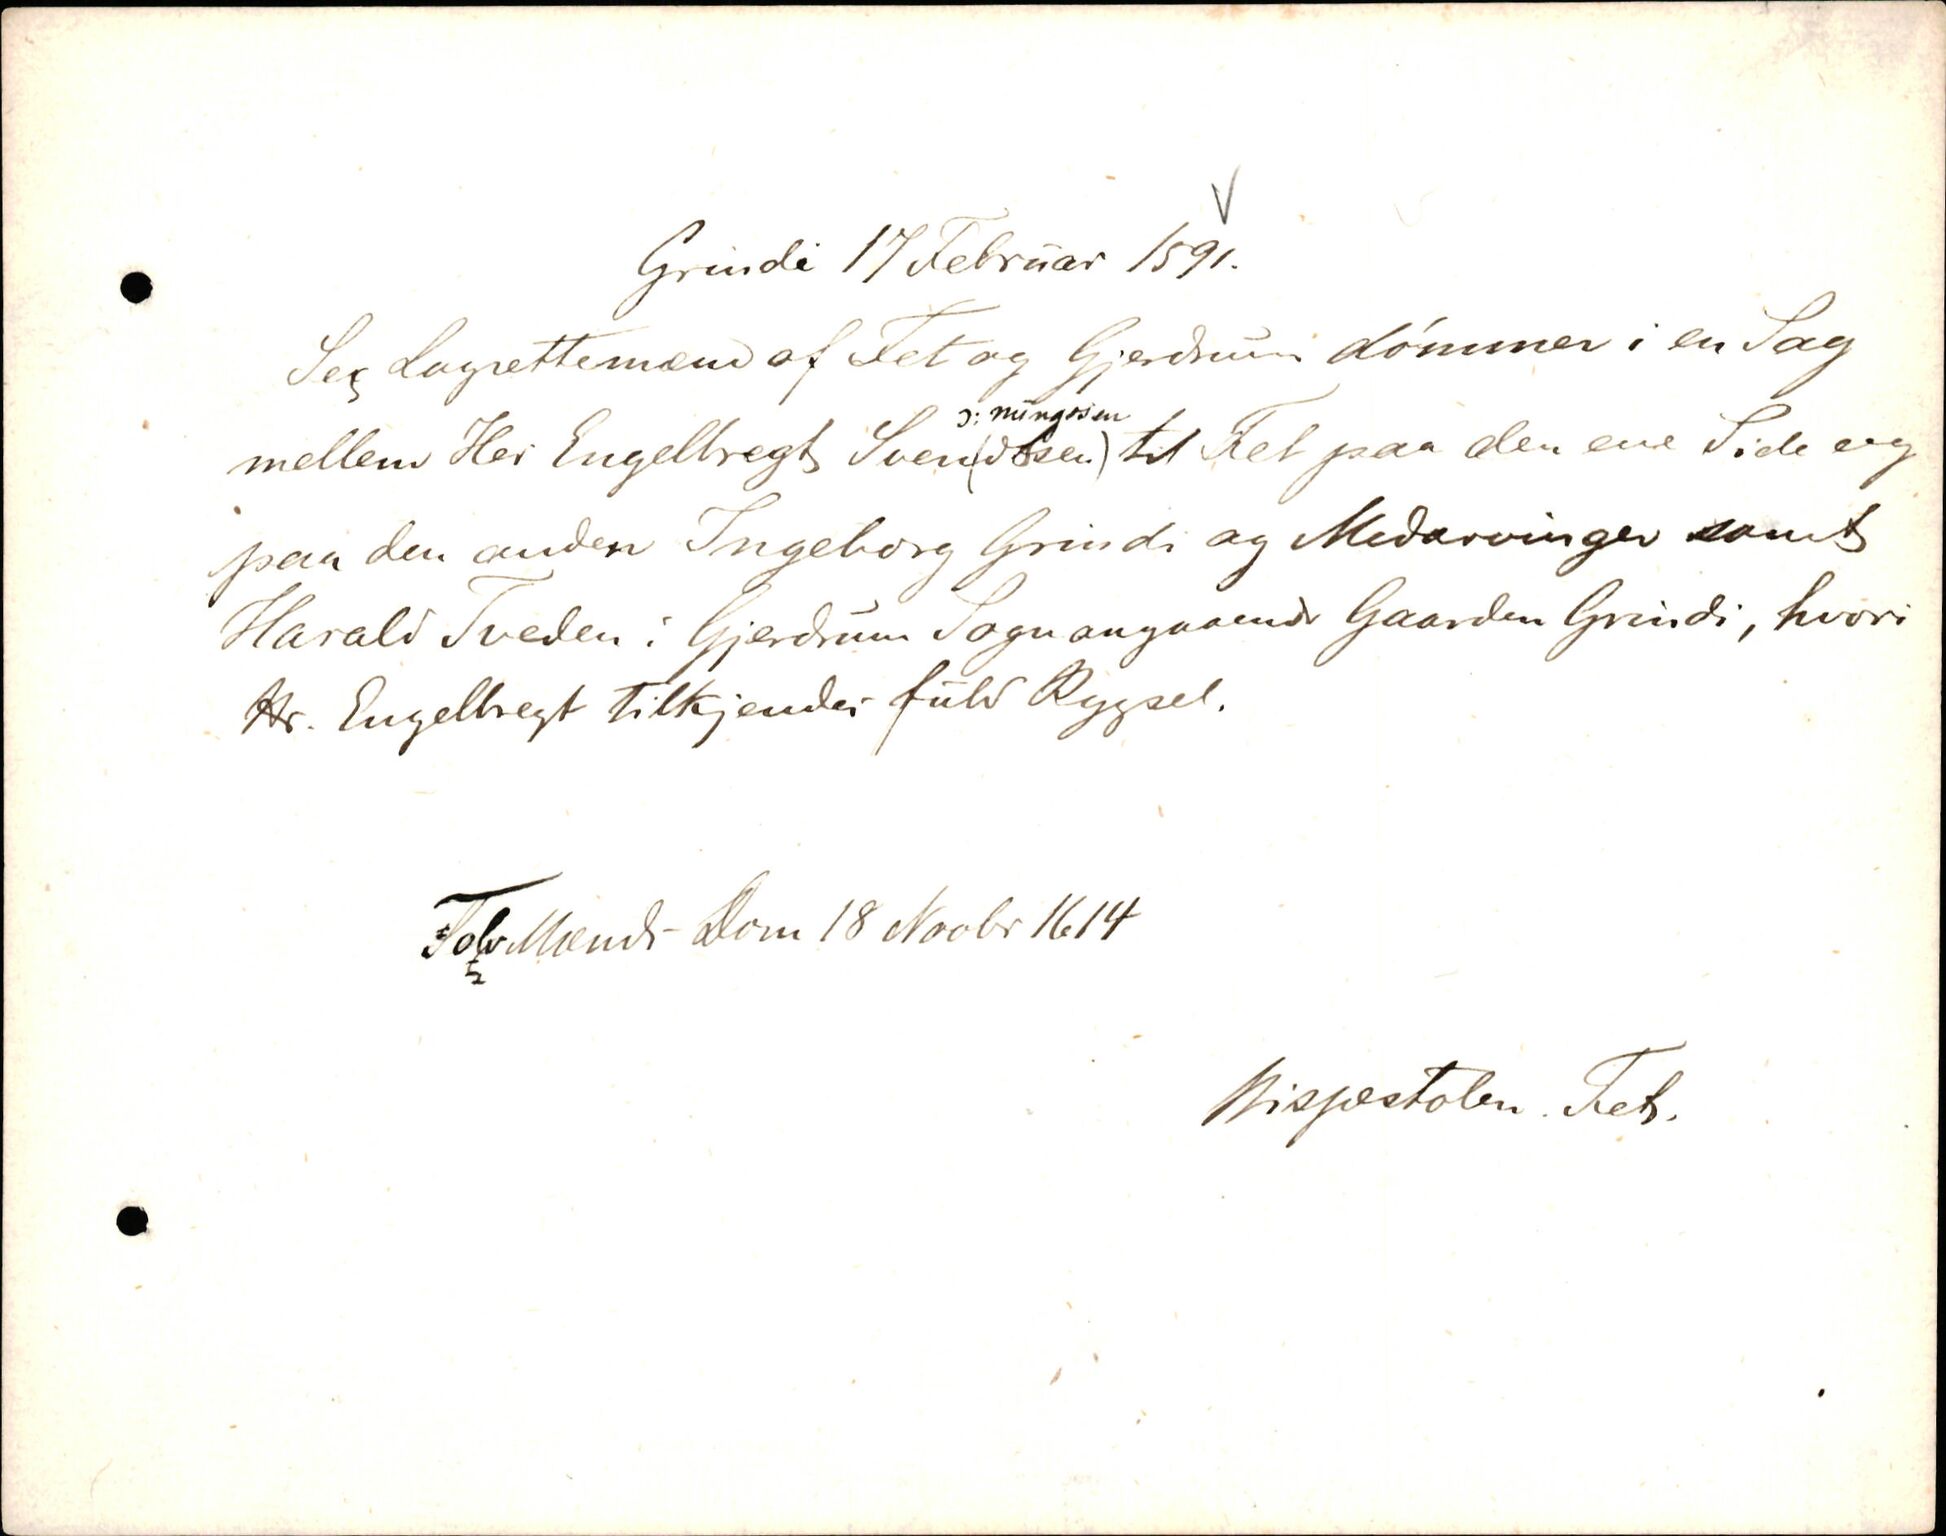 Grindi 17 Februar 1591.
Sex Lagrettemænd af Fet og Gjerdrum dömmer i en Sag
ɔ: nungssen
mellem Her Engelbregt Sven(dssen) til Fet paa den ene Side og
paa den anden Ingeborg Grindi og Medarvinger samt
Harald Tveden i Gjerdrum Sogn angaaende Gaarden Grindi, hvori
Hr. Engelbregt tilkjendes fuld Bygsel.
Tolv Mænds Dom 18 Novbr 1614
Bispestolen. Fet.